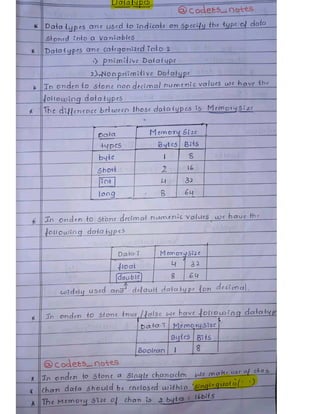 Datatypes
@coders_notes
* Datatypes are used to indicate or specify the type of data
stored into a variables.
* Datatypes are categorized into 2
1) primitive Datatype
2) Nonprimitive Datatype
* In order to store non decimal numeric values we have the
following datatypes
* The difference between those datatypes is Memory size
Data types Memory Size
Bytes Bits
byte 1 8
short 2 16
int 4 32
long 8 64
* In order to store decimal numeric values, we have the
following datatypes
Data T Memory size
float 4 32
double 8 64
widely used and default datatype for decimal.
* In order to store true / false we have following datatype
Data T Memory size
Bytes Bits
Boolean 1 8
@coders_notes
* In order to store a single character we make use of char
* Char data should be enclosed within single quote (' ')
* The Memory size of char is 2 byte = 16bits